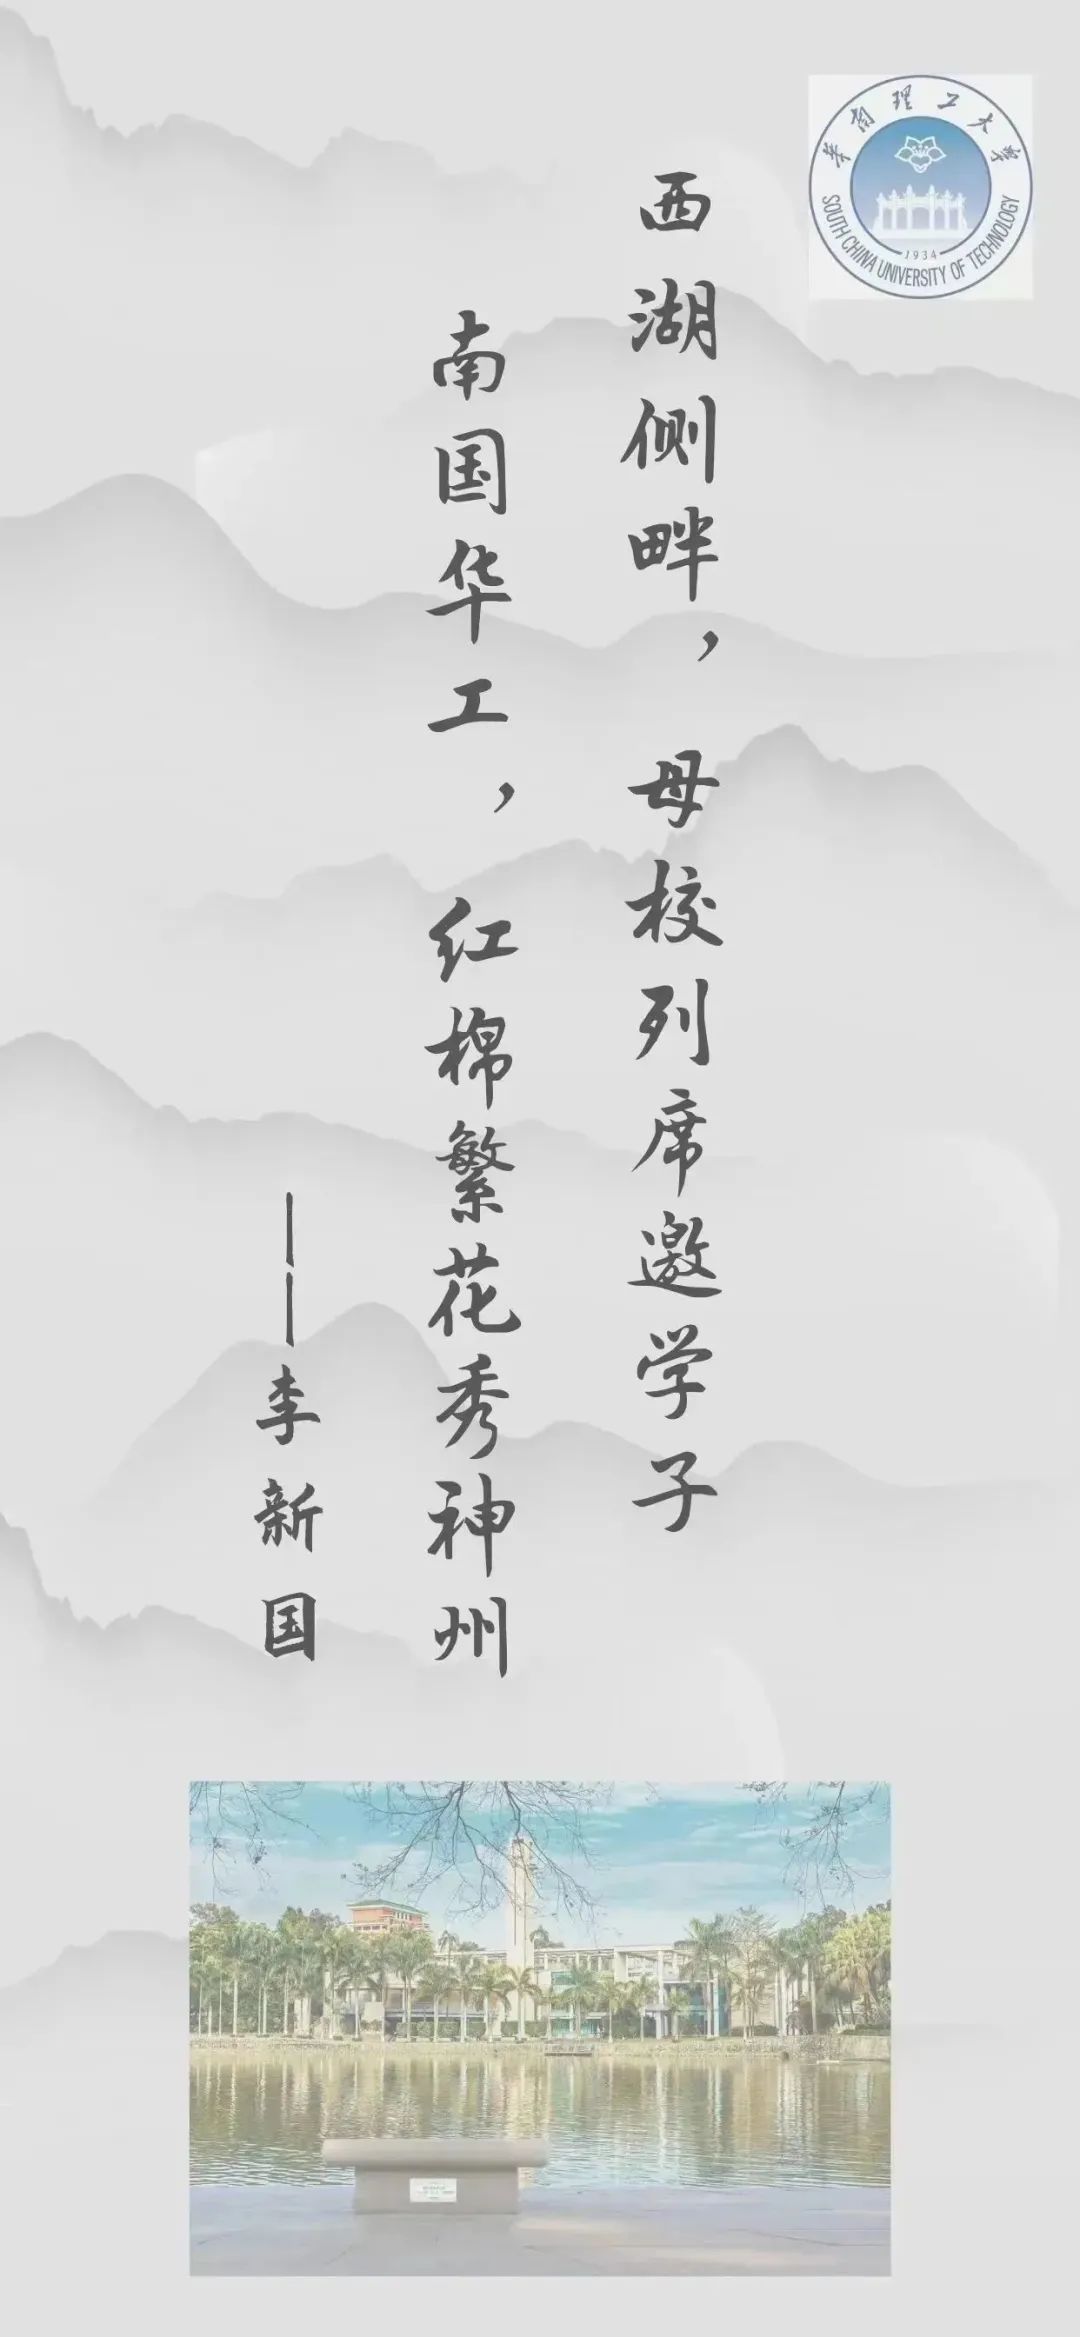 华南理工大学
SOUTH CHINA UNIVERSITY OF TECHNOLOGY
1934
西湖侧畔，母校列席邀学子
南国华工，红棉繁花秀神州
——李新国